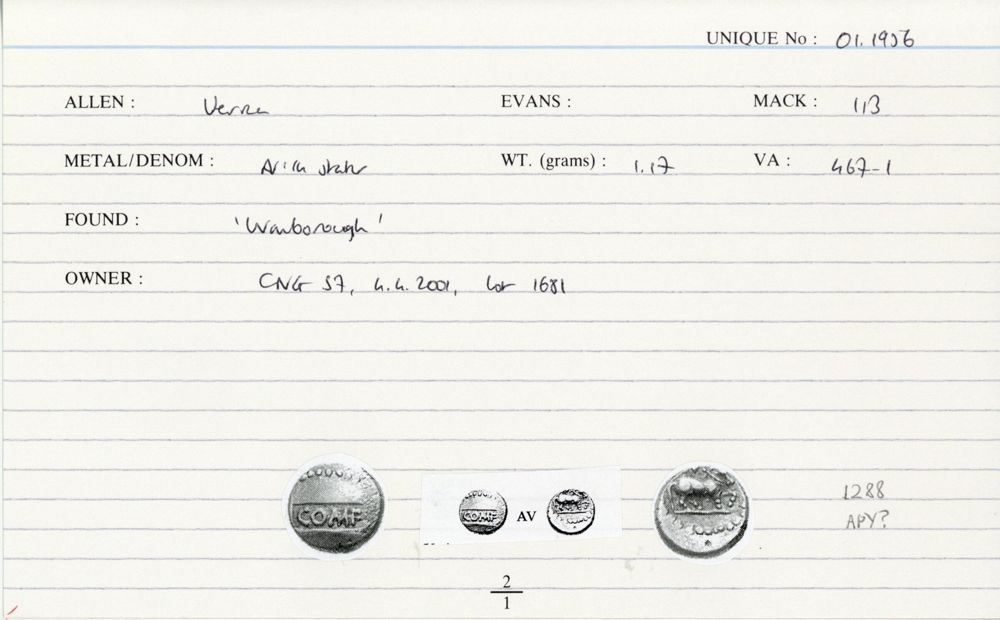 UNIQUE No : 01.1956
ALLEN : Verica EVANS : MACK : 113
METAL/DENOM : stater WT. (grams) : 1.17 VA : 467-1
FOUND : 'Wanborough'
OWNER : CNG 57, 4.4.2001, Lot 1681
COMF COMF AV
1288
APY?
2
1